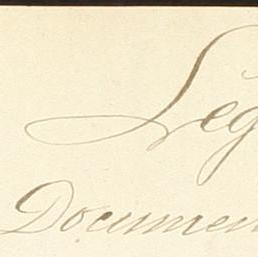 Leg
Documen